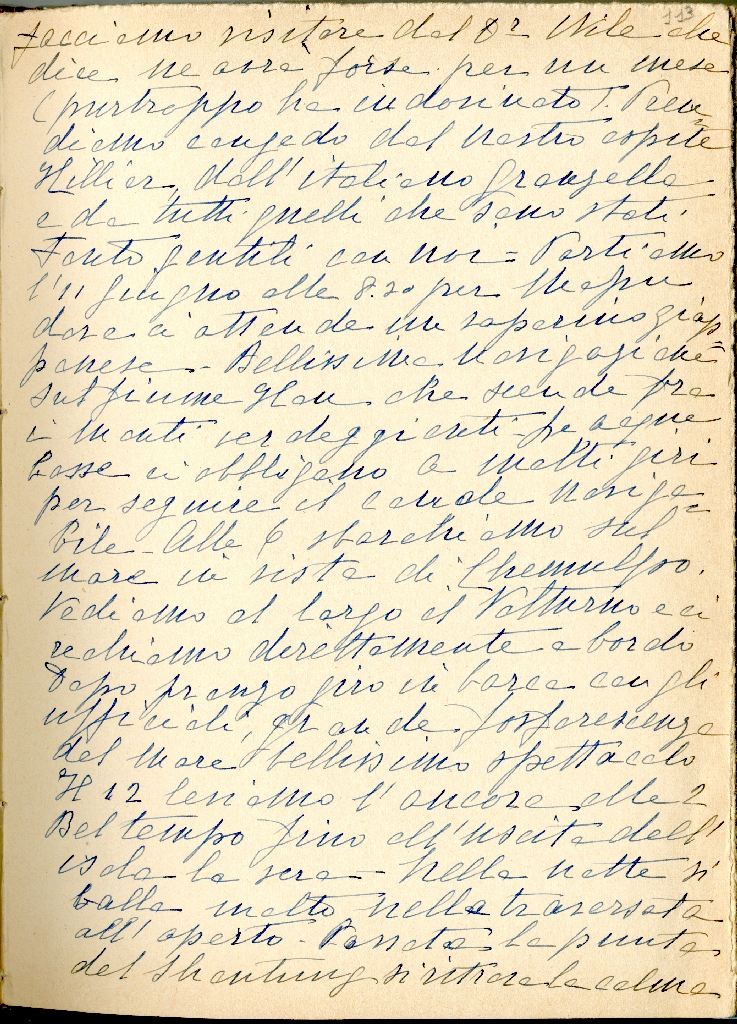 113
facciamo visitare dal Dr Wile che
dice ne avrà forse per un mese
(purtroppo ha indovinato). Pren=
diamo congedo dal nostro ospite
Hillier, dall'italiano Granzella
e da tutti quelli che sono stati
tanto gentili con noi = Partiamo
l'11 giugno alle 8.20 per Mapu
dove ci attende un vaporino giap=
ponese - Bellissima navigazione
sul fiume Han che scende fra
i monti verdeggianti - Le acque
basse ci obbligano a molti giri
per seguire il canale naviga=
bile - Alle 6 sbarchiamo sul
mare in vista di Chemulpo.
Vediamo al largo il Volturno e ci
rechiamo direttamente a bordo
Dopo pranzo giro in barca con gli
ufficiali, grande fosforescenza
del mare bellissimo spettacolo
Il 12 leviamo l'ancora alle 2
Bel tempo fino all'uscita dell'
isola la sera - Nella notte si
balla molto nella traversata
all'aperto - Passata la punta
del Shantung si ritrova la calma